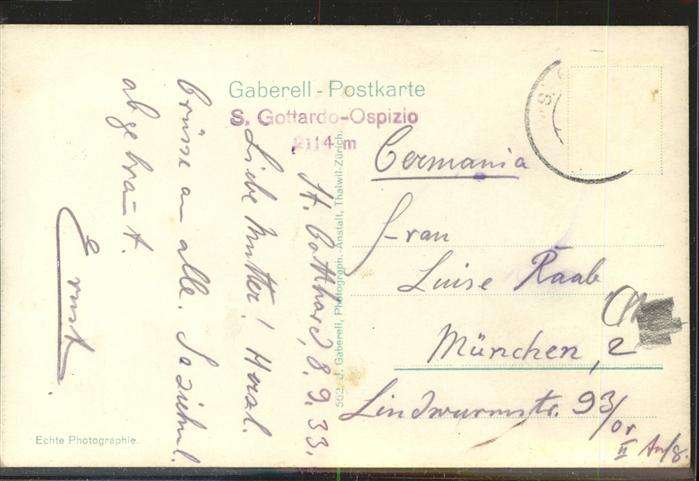 Gaberell - Postkarte
S. Gottardo-Ospizio
2114 m
St. Gotthard, 8.9.33.
Liebe Mutter! Herzl.
Grüsse an alle. Saziehml.
abgebrannt.
Ernst
Germania
Frau
Luise Raab
München, 2
Lindwurmstr. 93/or
II Aufg.
502. J. Gaberell, Photograph. Anstalt, Thalwil-Zürich.
Echte Photographie.